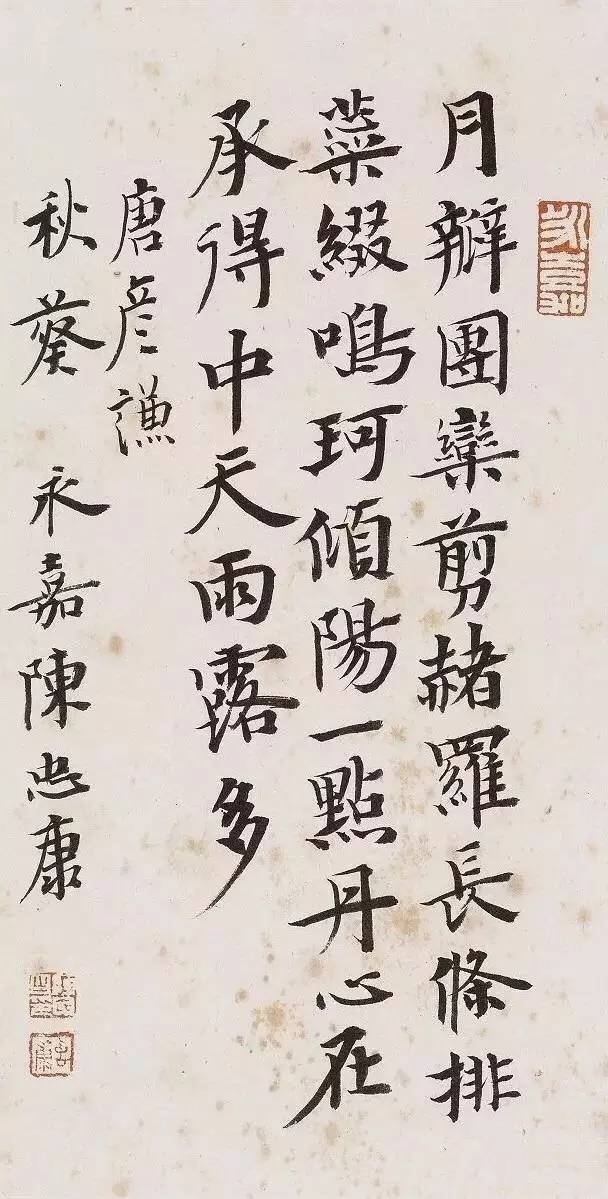 月瓣團欒剪赭羅長條排
蕊綴鳴珂傾陽一點丹心在
承得中天雨露多
唐彥謙
秋葵 永嘉陳忠康
永嘉